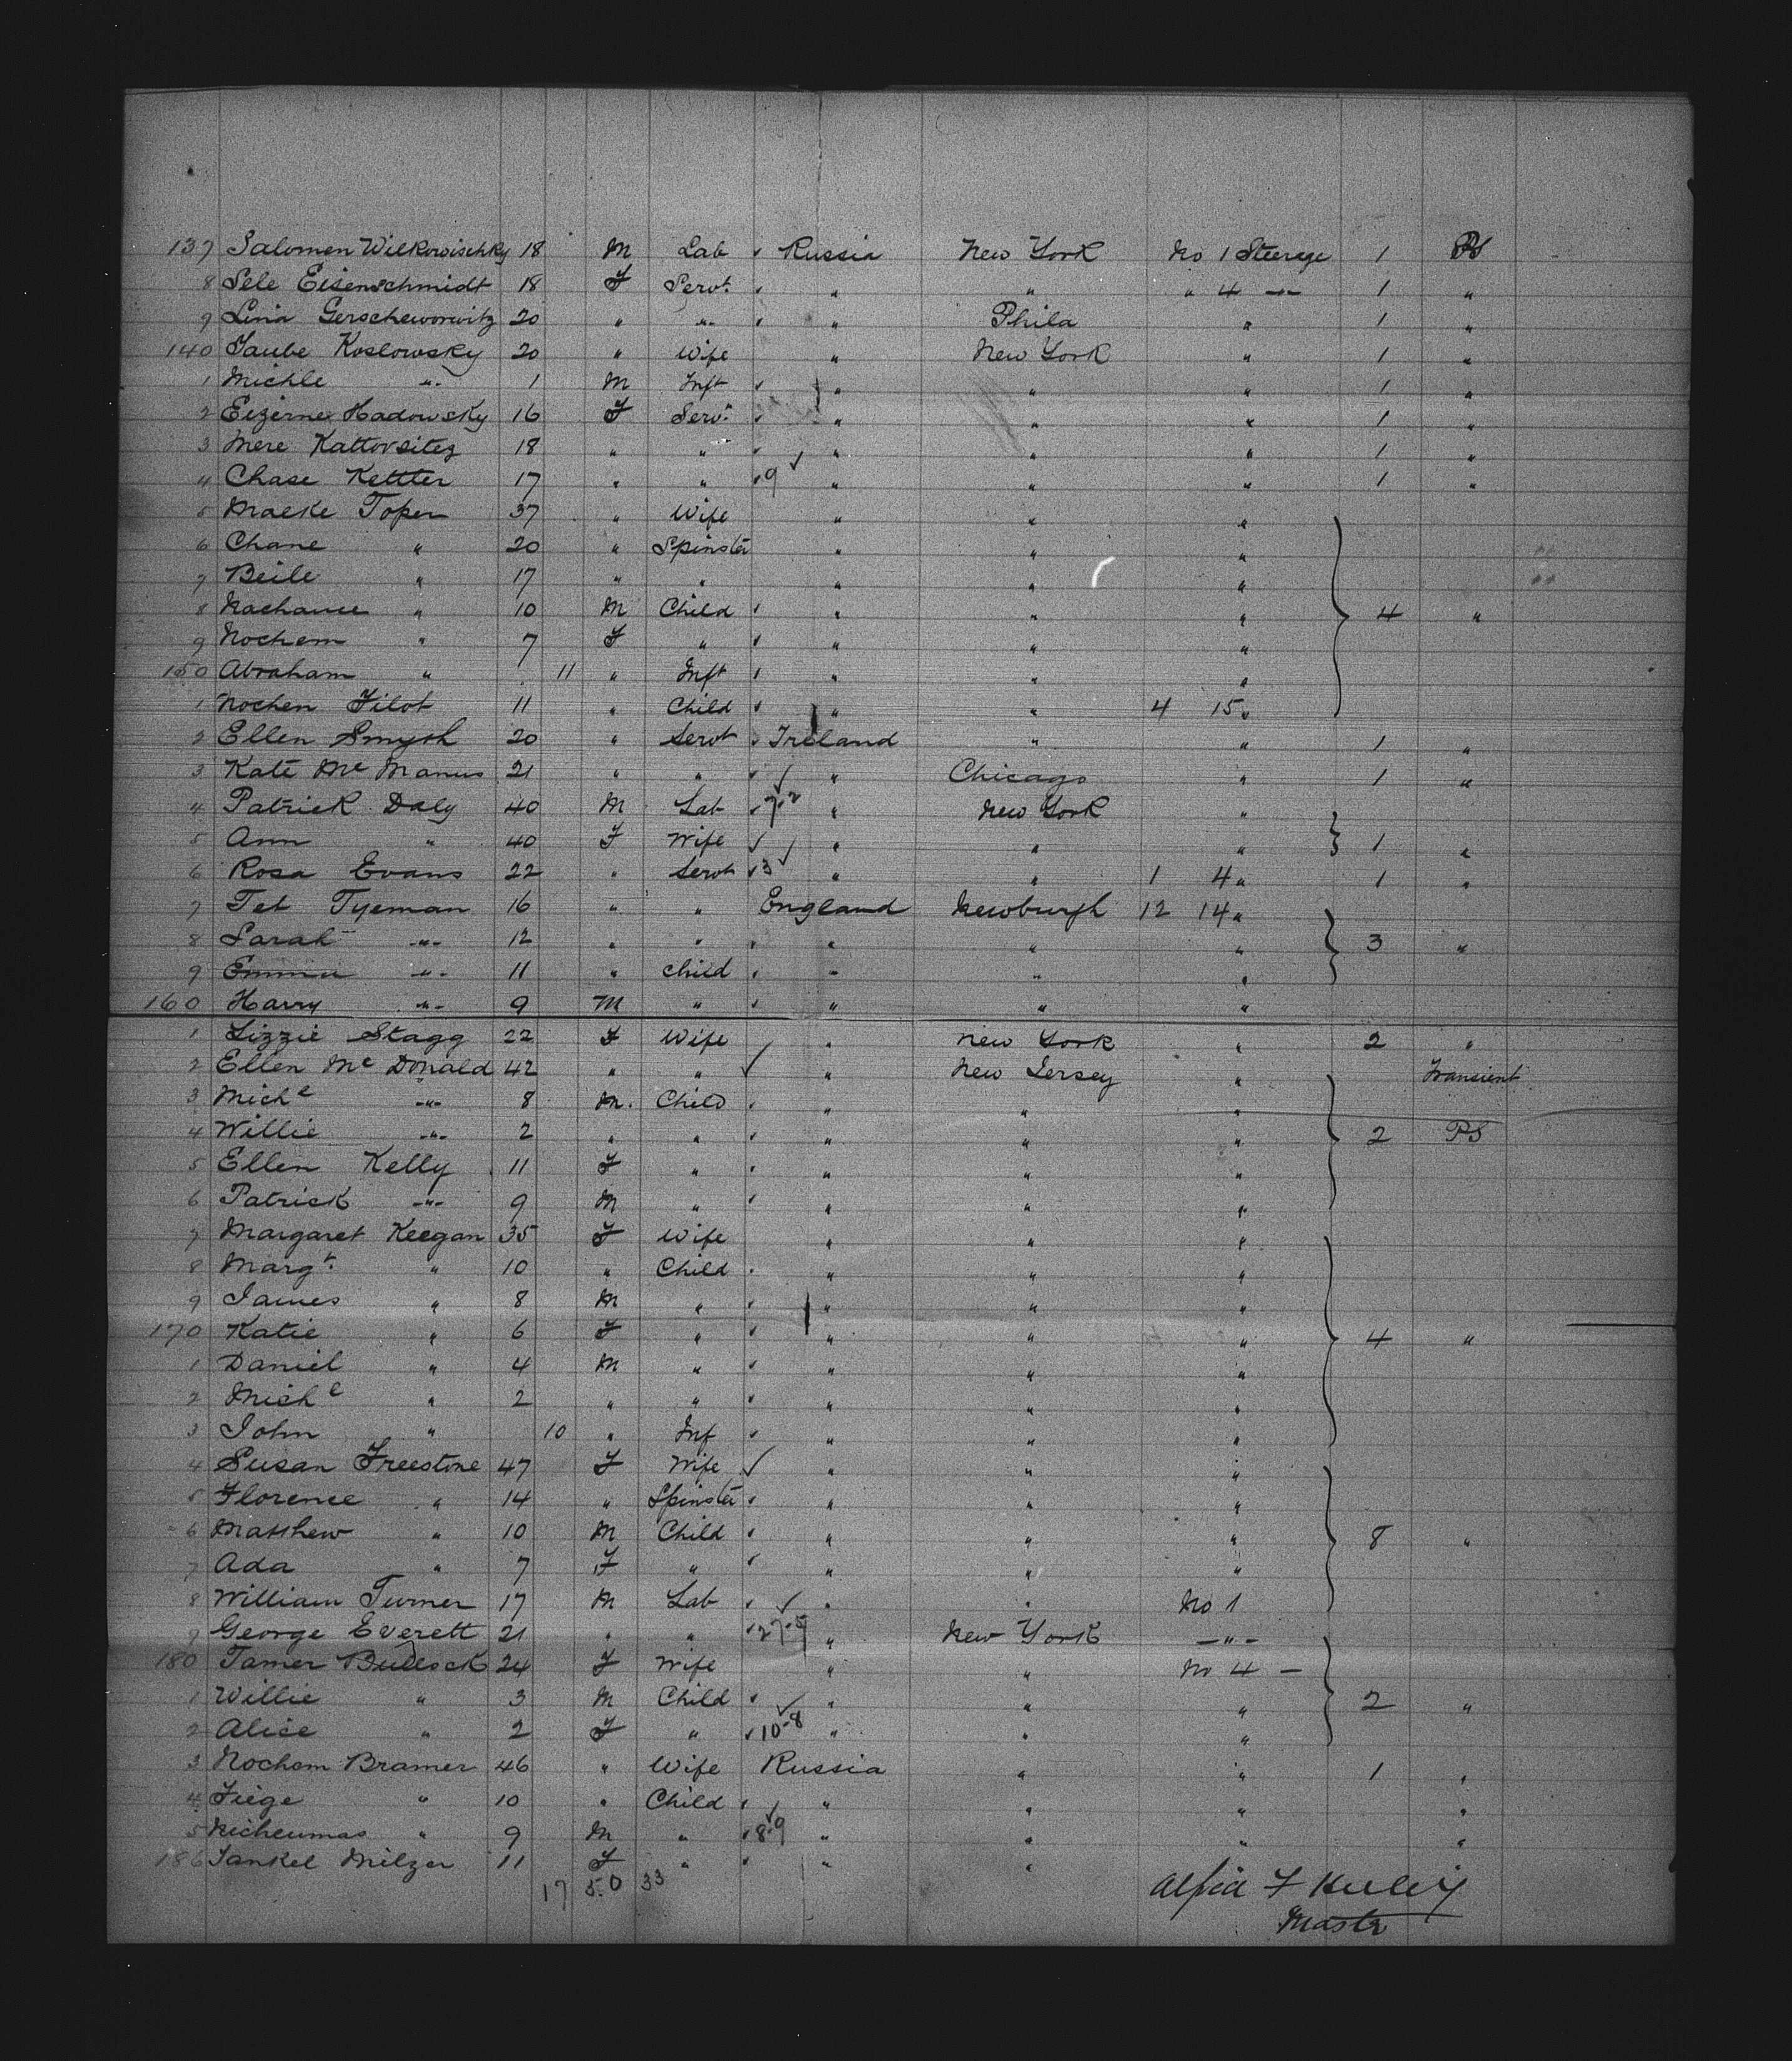 137 Salomen Wilkowischky 18 M Lab Russia New York No 1 Steerage 1 PS
8 Sele Eisenschmidt 18 F Servt. " " " 4 -"- 1 "
9 Lina Gerscheworwitz 20 " -"- " Phila " 1 "
140 Taube Koslowsky 20 " Wife " New York " 1 "
1 Michle -"- 1 M Inft " " " 1 "
2 Eizerne Hadowsky 16 F Servt. " " " 1 "
3 Mere Kattovsitez 18 " " " " " 1 "
4 Chase Kettter 17 " " 9 " " " 1 "
5 Maeke Toper 37 " Wife " " "
6 Chane " 20 " Spinster " " "
7 Beile " 17 " " " " "
8 Nachame " 10 M Child " " " 4 "
9 Nochem " 7 F " " " "
150 Abraham " 11 " Inft " " "
1 Nochen Filot 11 " Child " " 4 15 "
2 Ellen Smyth 20 " Servt Ireland " " 1 "
3 Kate Mc Manus 21 " " " Chicago " 1 "
4 Patrick Daly 40 M Lab 7-2 " New York "
5 Ann " 40 F Wife " " " 1 "
6 Rosa Evans 22 " Servt 3 " " 1 4 " 1 "
7 Tet Tyeman 16 " " England Newburgh 12 14 "
8 Sarah -"- 12 " " " " " 3 "
9 Emma -"- 11 " Child " " "
160 Harry -"- 9 M " " " "
1 Lizzie Stagg 22 F Wife " New York " 2 "
2 Ellen Mc Donald 42 " " " New Jersey " Transient
3 Michl -"- 8 M. Child " " "
4 Willie -"- 2 " " " " " 2 PS
5 Ellen Kelly 11 F " " " "
6 Patrick -"- 9 M " " " "
7 Margaret Keegan 35 F Wife " " "
8 Margt. " 10 " Child " " "
9 James " 8 M " " " "
170 Katie " 6 F " " " " 4 "
1 Daniel " 4 M " " " "
2 Michl " 2 " " " " "
3 John " 10 " Inf " " "
4 Susan Freestone 47 F Wife " " "
5 Florence " 14 " Spinster " " "
6 Matthew " 10 M Child " " " 8 "
7 Ada " 7 F " " " "
8 William Turner 17 M Lab " " No 1
9 George Everett 21 " " 27-5 " New York -"-
180 Tamer Bullock 24 F Wife " " No 4 -
1 Willie " 3 M Child " " " 2 "
2 Alice " 2 F " 10-8 " " "
3 Nochom Bramer 46 " Wife Russia " " 1 "
4 Fiege " 10 " Child " " " "
5 Nicheumas " 9 M " 8-9 " " " "
186 Jankel Milzer 11 F " " "
17 50 33
Master